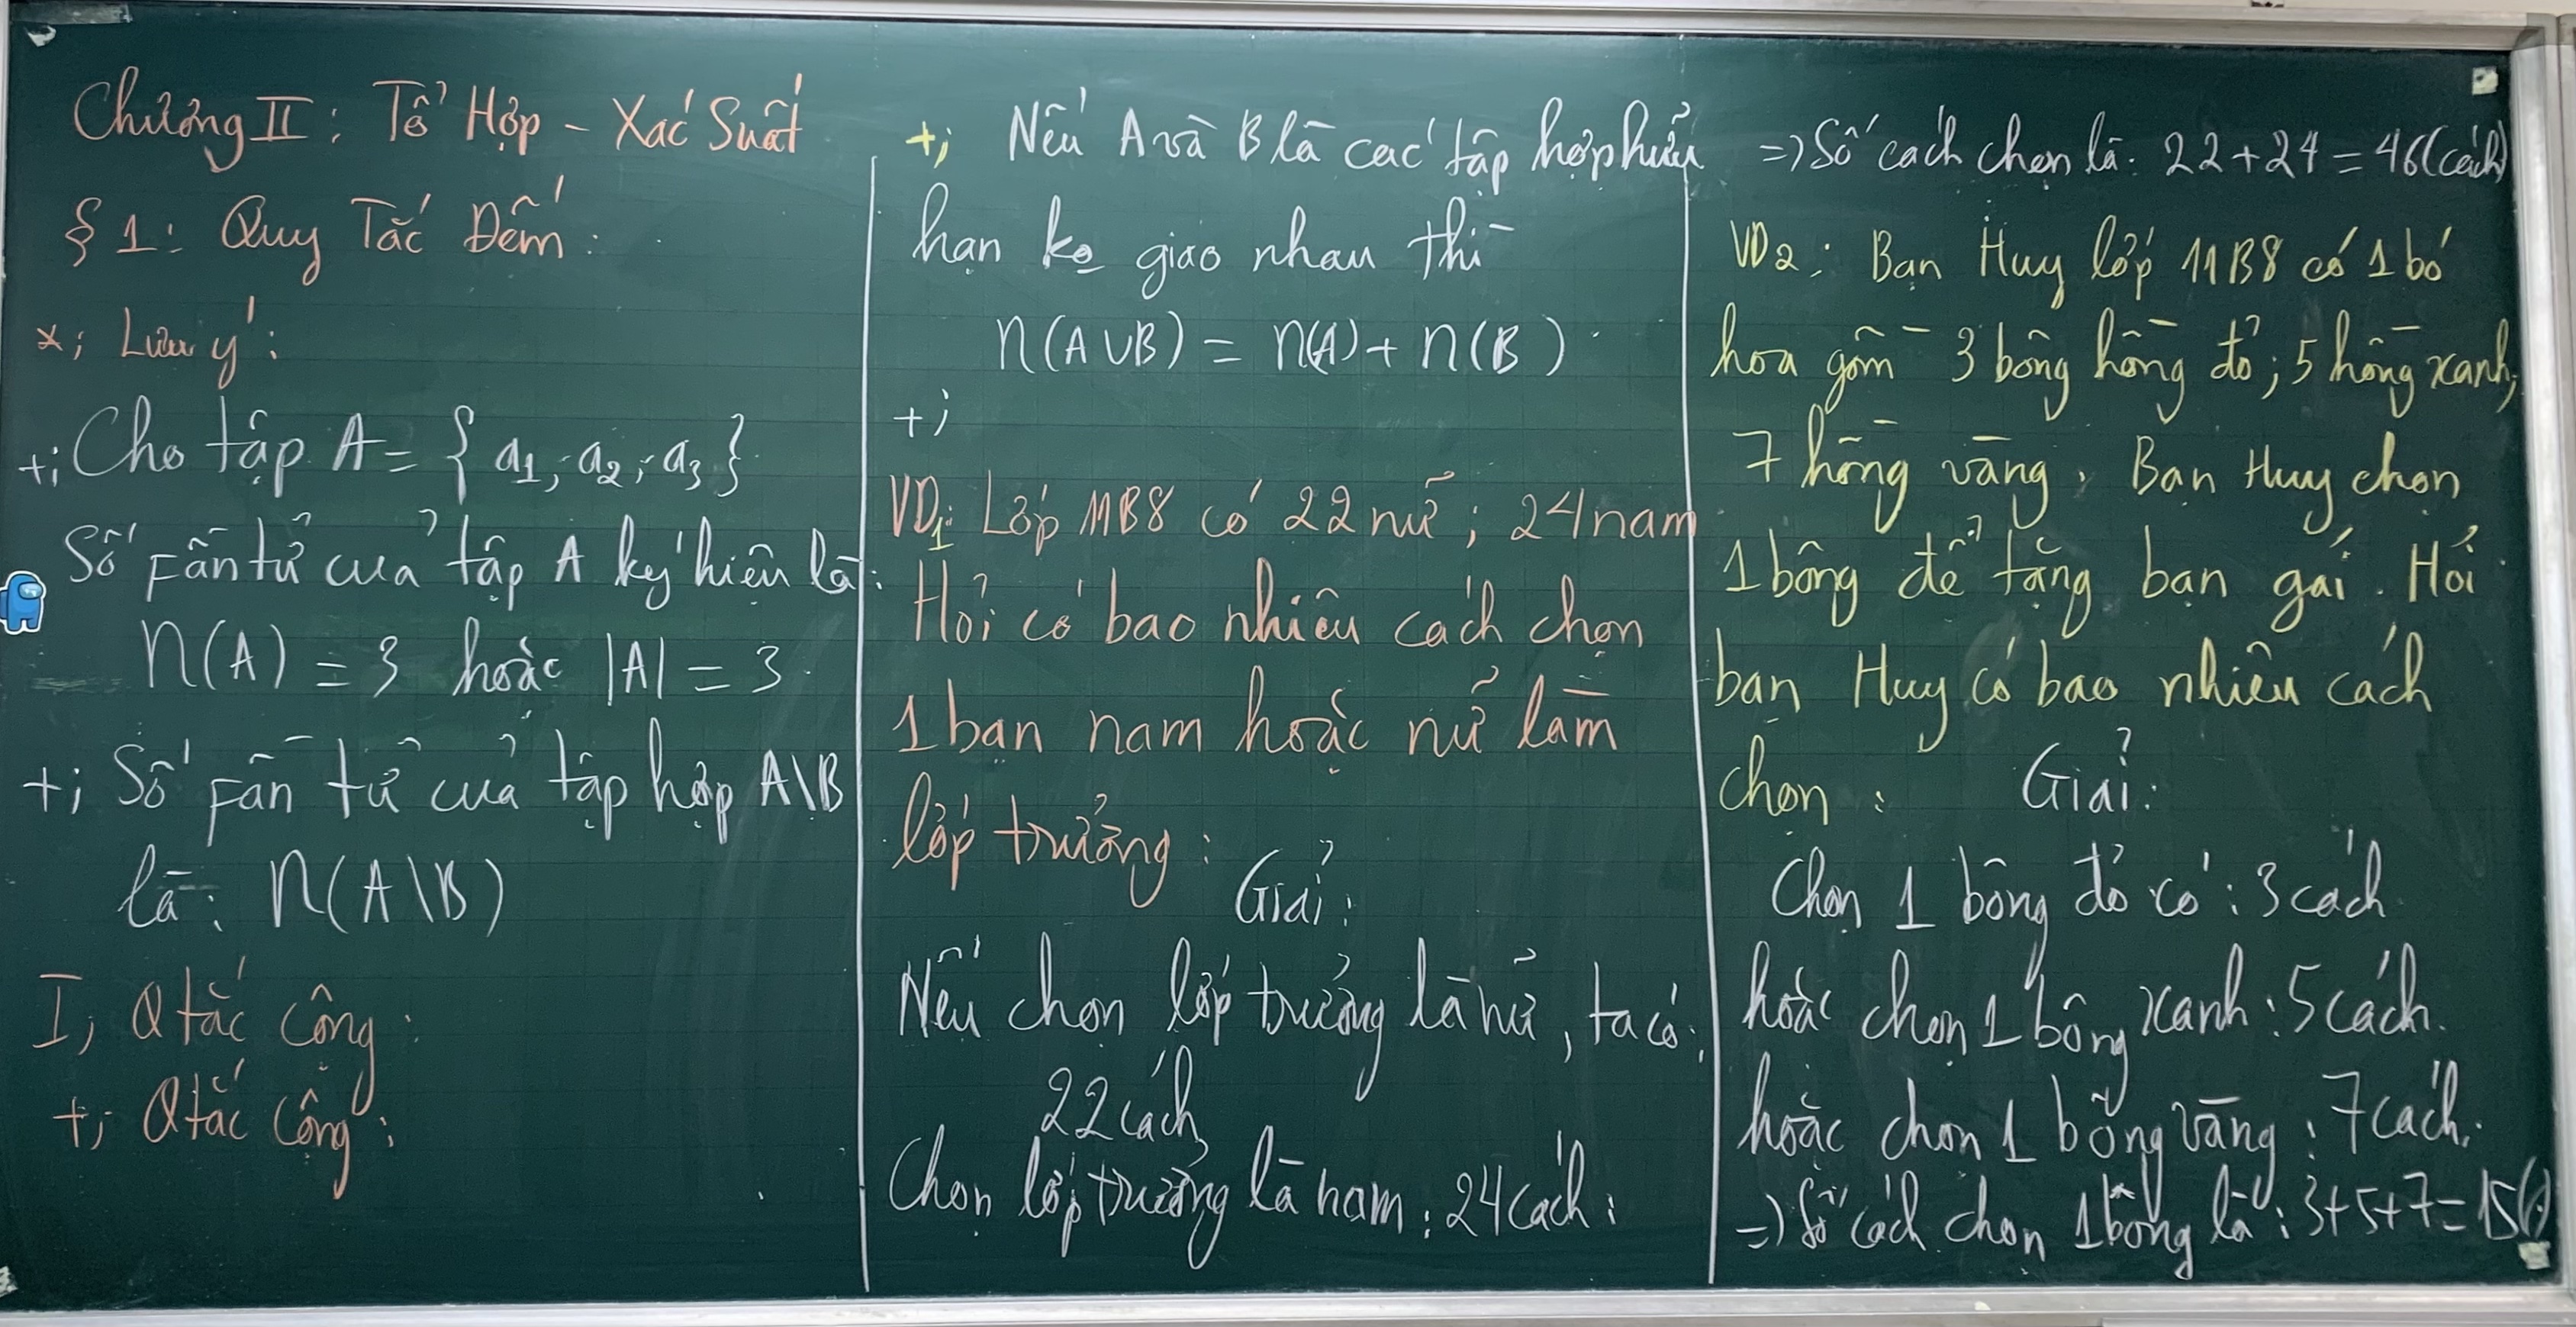 Chương II: Tổ Hợp - Xác Suất
§ 1: Quy Tắc Đếm:
*; Lưu ý:
+; Cho tập A = { a1; a2; a3 }
Số Fần tử của tập A ký hiệu là:
n(A) = 3 hoặc |A| = 3
+; Số Fần tử của tập hợp A\B
là: n(A\B)
I, Qtắc Cộng:
+, Qtắc Cộng:
+; Nếu A và B là các tập hợp hữu
hạn ko giao nhau thì
n(A∪B) = n(A) + n(B)
+;
VD1: Lớp 11B8 có 22 nữ; 24 nam
Hỏi có bao nhiêu cách chọn
1 bạn nam hoặc nữ làm
lớp trưởng:
Giải:
Nếu chọn lớp trưởng là nữ, ta có:
22 cách
Chọn lớp trưởng là nam: 24 cách:
=> Số cách chọn là: 22 + 24 = 46 (cách)
VD2: Bạn Huy lớp 11B8 có 1 bó
hoa gồm 3 bông hồng đỏ; 5 hồng xanh,
7 hồng vàng. Bạn Huy chọn
1 bông để tặng bạn gái. Hỏi
bạn Huy có bao nhiêu cách
chọn:
Giải:
Chọn 1 bông đỏ có: 3 cách
hoặc chọn 1 bông xanh: 5 cách.
hoặc chọn 1 bông vàng: 7 cách.
=> Số cách chọn 1 bông là: 3+5+7=15